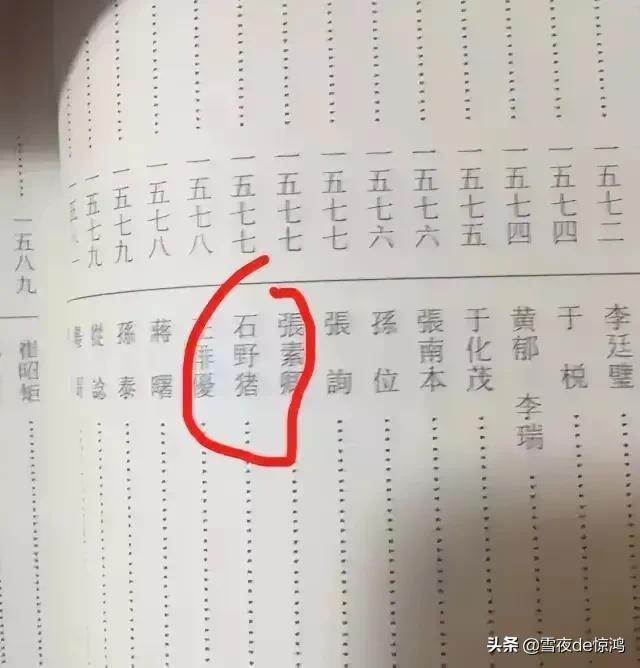 一五七二 李廷璧
一五七四 于梲
一五七四 黄郁 李瑞
一五七五 于化茂
一五七六 張南本
一五七六 孫位
一五七七 張詢
一五七七 張素卿
一五七七 石野猪
一五七八 王俳優
一五七八 蔣曙
一五七九 孫泰
一五七九 從諗
一五八一
一五八九 崔昭矩
头条 @雪夜de惊鸿